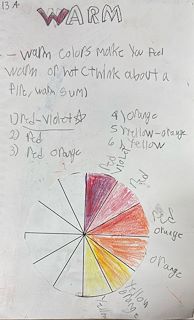 13 A
WARM
- warm colors make you feel
warm or hot (think about a
fire, warm sun)
1) red-violet☆
2) Red
3) Red orange
4) orange
5 Yellow-orange
6 Yellow
Red
Violet
Red
Red
orange
orange
Yellow
orange